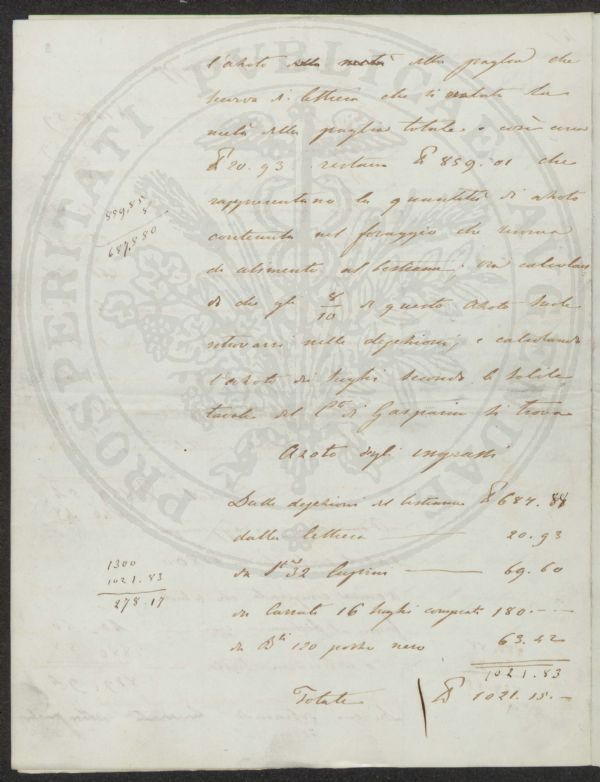 l'azoto della metà della paglia che
serva di lettiera che si valuta la
metà della paglia totale, e così circa
℔ 20.93 restano ℔ 859.01 che
rappresentano la quantità di azoto
contenuta nel foraggio che serviva
di alimento al bestiame, ora calcolan
do che gli 8/10 di questo azoto
ritrovarsi nelle dejezioni, e calcolando
l'azoto dei secondo le solite
tavole del C.te di Gasparin si trova
Azoto degli ingrassi
Dalle dejezioni del bestiame ℔ 687.88
dalla lettiera — 20.93
da 32 lupini — 69.60
da Carrate 16 180.--
da 120 nero 63.42
1021.83
Totale ℔ 1021.15.-
859,85
8
687,880
1300
1021.83
278.17
PROSPERITATI PUBLICAE AUGENDAE